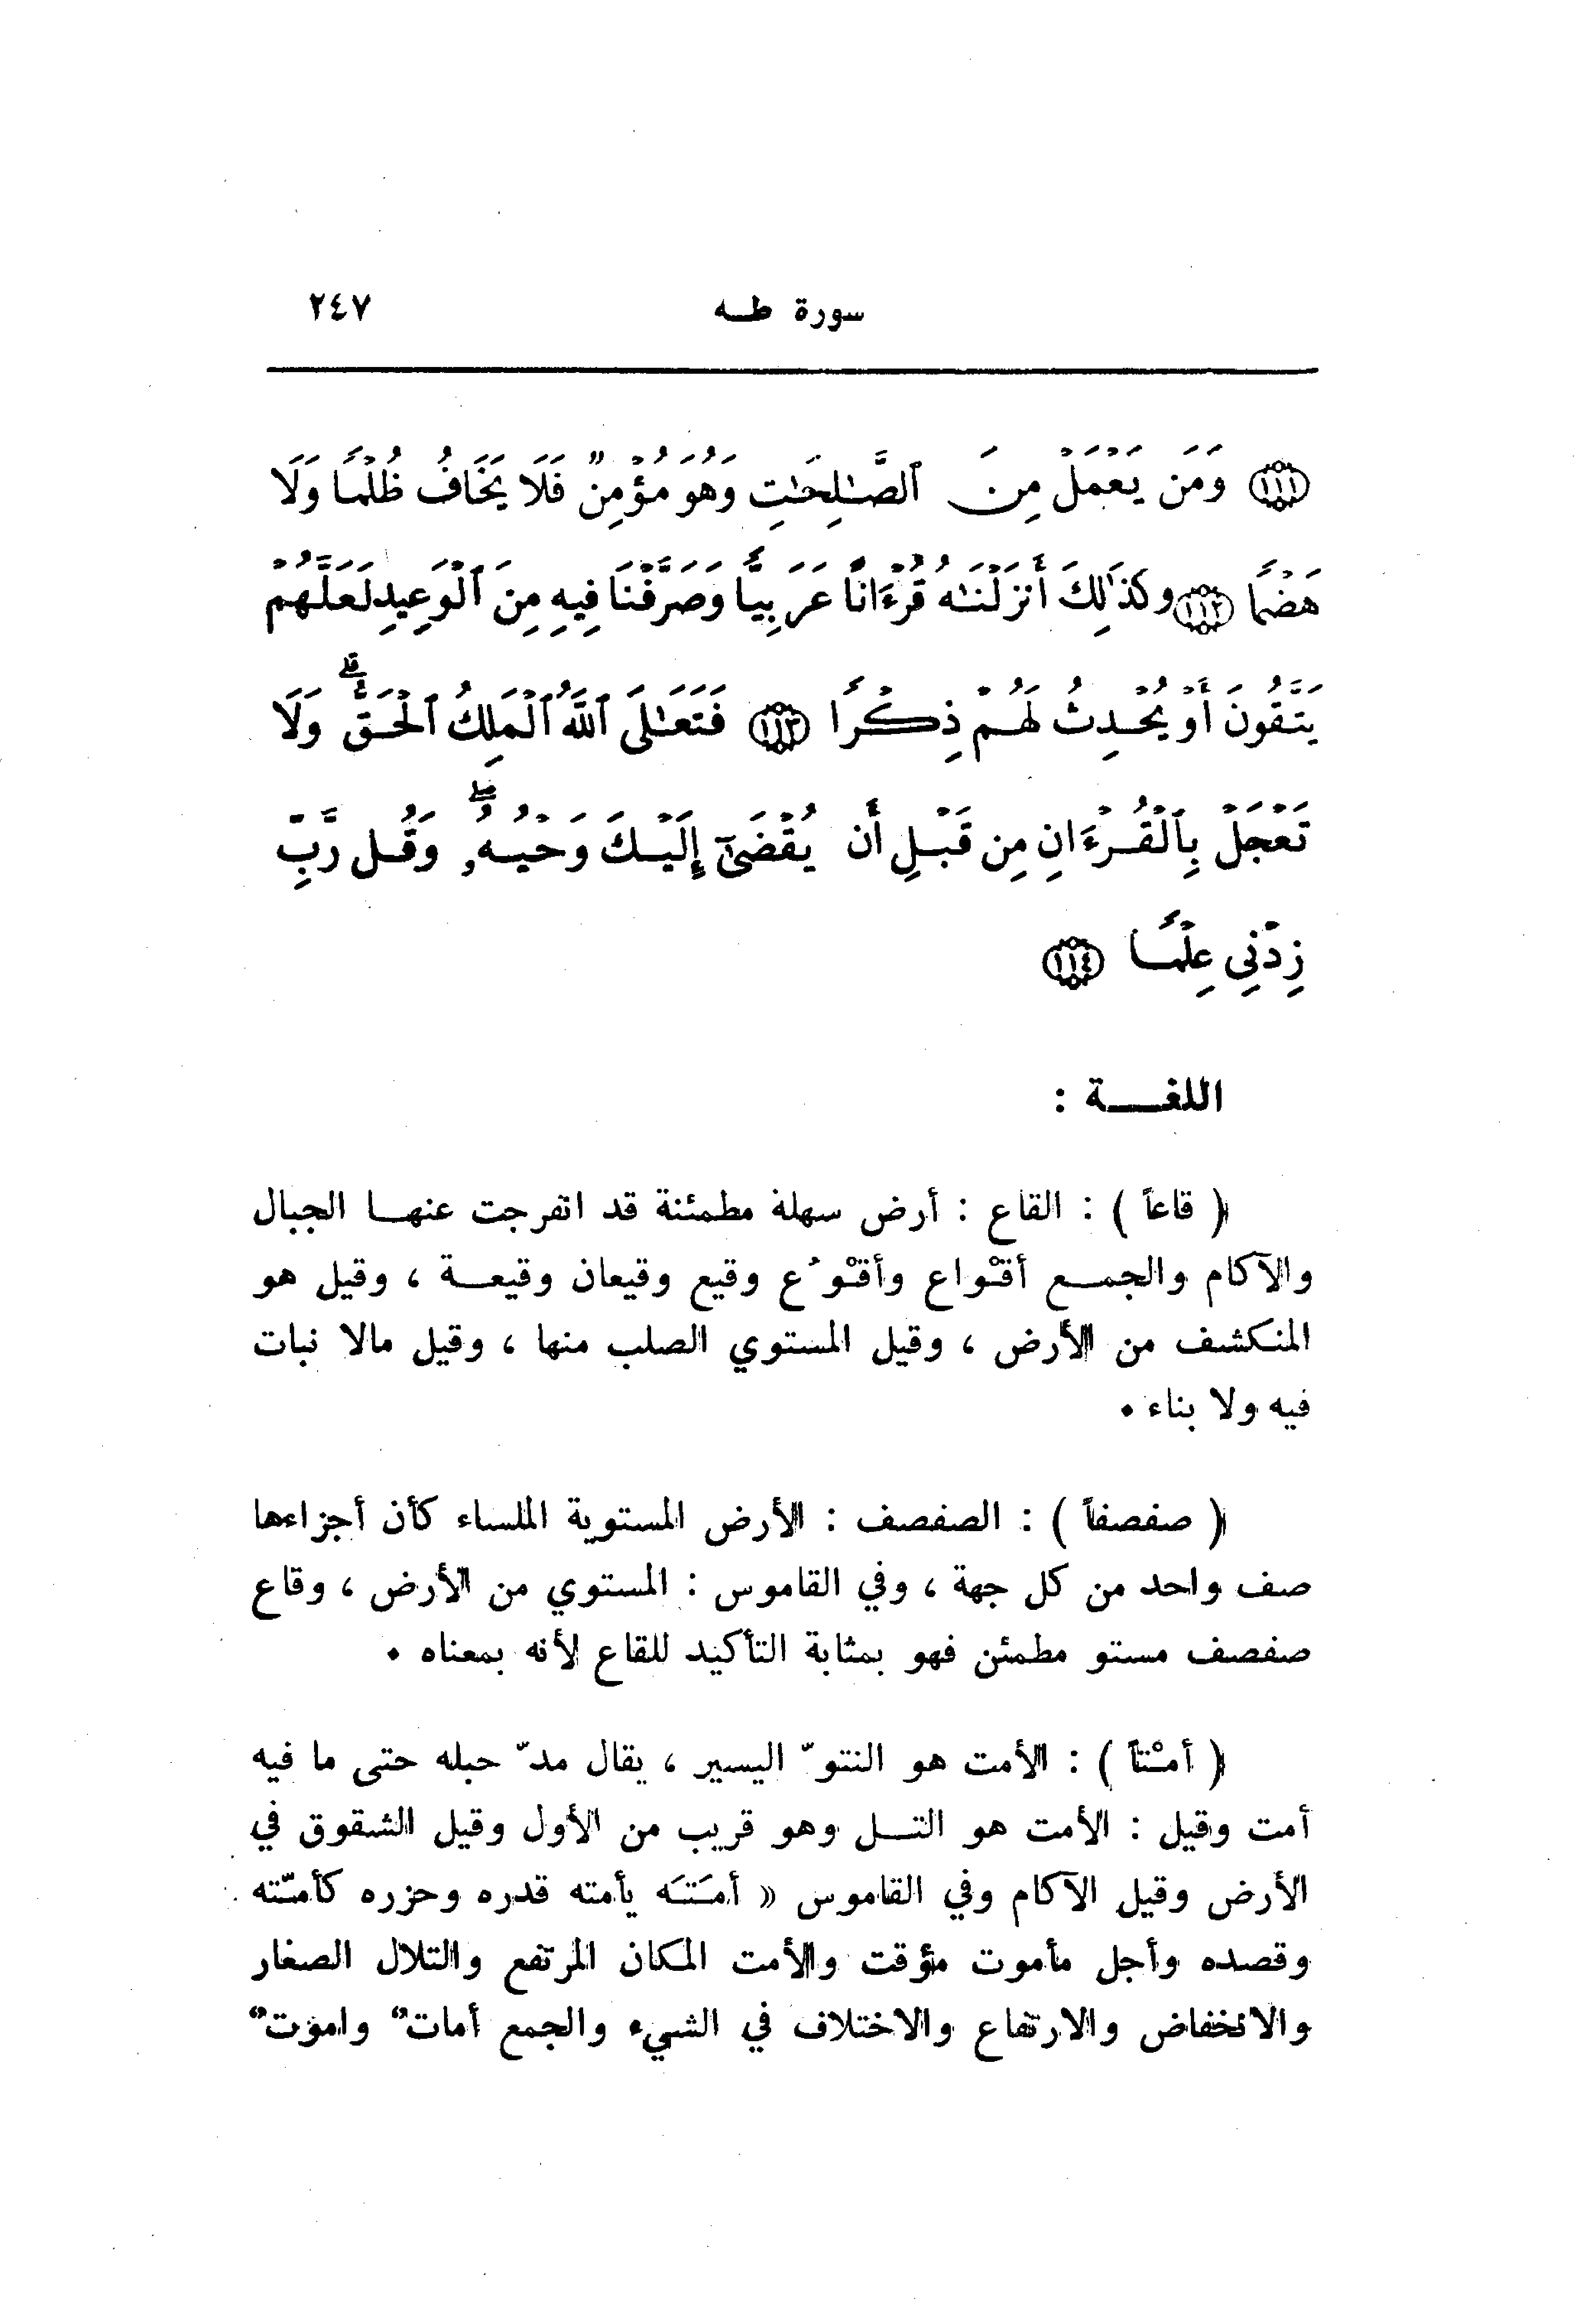 سورة طـه ٢٤٧
﴿١١١﴾ وَمَن يَعْمَلْ مِنَ ٱلصَّٰلِحَٰتِ وَهُوَ مُؤْمِنٌ فَلَا يَخَافُ ظُلْمًا وَلَا
هَضْمًا ﴿١١٢﴾ وَكَذَٰلِكَ أَنزَلْنَٰهُ قُرْءَانًا عَرَبِيًّا وَصَرَّفْنَا فِيهِ مِنَ ٱلْوَعِيدِ لَعَلَّهُمْ
يَتَّقُونَ أَوْ يُحْدِثُ لَهُمْ ذِكْرًا ﴿١١٣﴾ فَتَعَٰلَى ٱللَّهُ ٱلْمَلِكُ ٱلْحَقُّ ۗ وَلَا
تَعْجَلْ بِٱلْقُرْءَانِ مِن قَبْلِ أَن يُقْضَىٰٓ إِلَيْكَ وَحْيُهُۥ ۖ وَقُل رَّبِّ
زِدْنِي عِلْمًا ﴿١١٤﴾
اللغـــة :
( قاعاً ) : القاع : أرض سهلة مطمئنة قد انفرجت عنهـا الجبال
والآكام والجمـع أقْواع وأقْوُع وقيع وقيعان وقيعـة ، وقيل هو
المنكشف من الأرض ، وقيل المستوي الصلب منها ، وقيل مالا نبات
فيه ولا بناء ٠
( صفصفاً ) : الصفصف : الأرض المستوية الملساء كأن أجزاءها
صف واحد من كل جهة ، وفي القاموس : المستوي من الأرض ، وقاع
صفصف مستو مطمئن فهو بمثابة التأكيد للقاع لأنه بمعناه ٠
( أمْتاً ) : الأمت هو النتوّ اليسير ، يقال مدّ حبله حتى ما فيه
أمت وقيل : الأمت هو التـل وهو قريب من الأول وقيل الشقوق في
الأرض وقيل الآكام وفي القاموس « أمَتَه يأمته قدره وحزره كأمّته
وقصده وأجل مأموت مؤقت والأمت المكان المرتفع والتلال الصغار
والانخفاض والارتفاع والاختلاف في الشيء والجمع أماتٌ واموتٌ